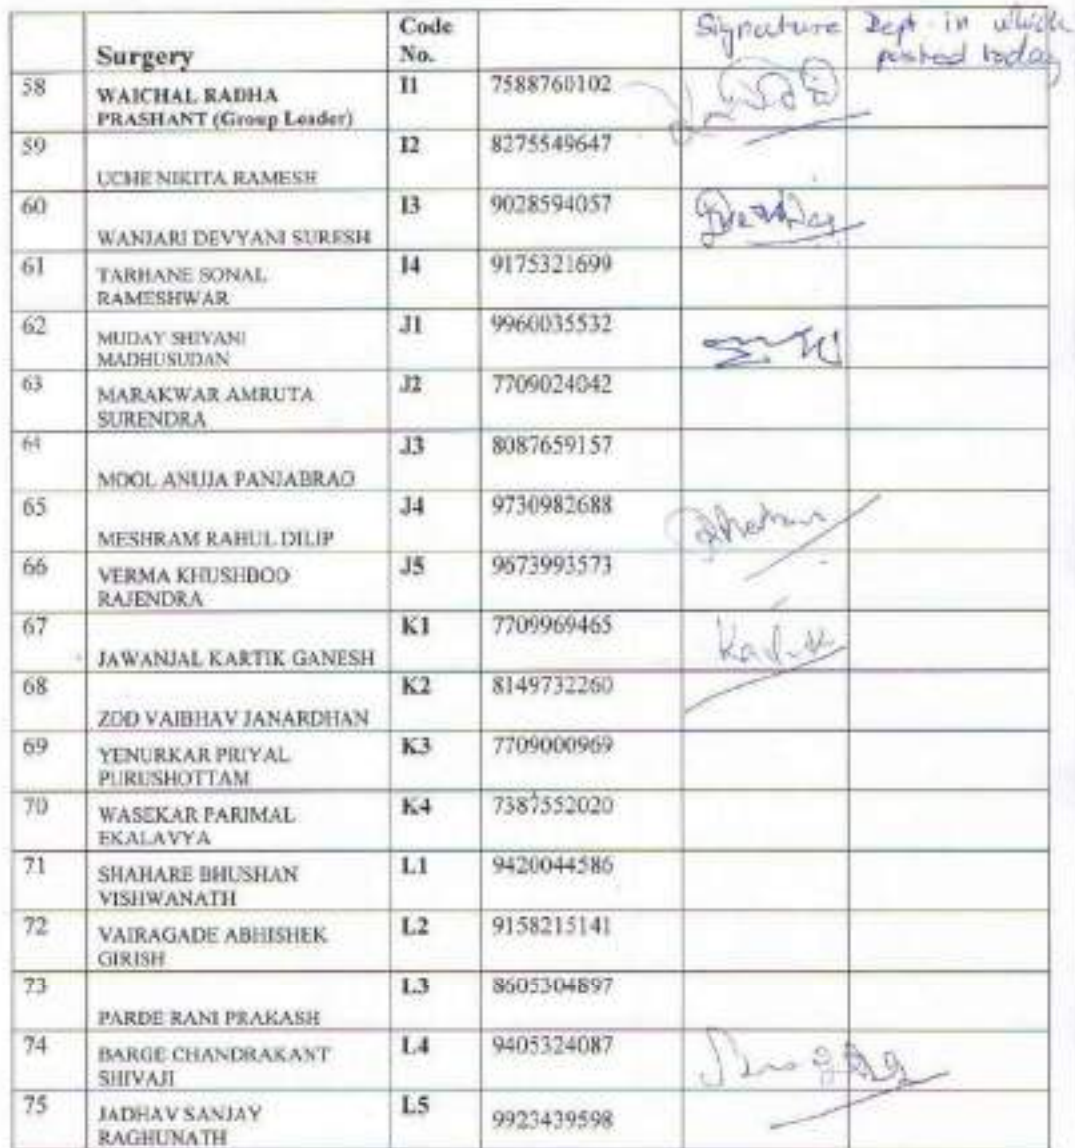 Surgery Code No. Signature Dept. in which posted today
58 WAICHAL RADHA PRASHANT (Group Leader) I1 7588760102
59 UCHE NIKITA RAMESH I2 8275549647
60 WANJARI DEVYANI SURESH I3 9028594057
61 TARHANE SONAL RAMESHWAR I4 9175321699
62 MUDAY SHIVANI MADHUSUDAN J1 9960035532
63 MARAKWAR AMRUTA SURENDRA J2 7709024042
64 MOOL ANUJA PANJABRAO J3 8087659157
65 MESHRAM RAHUL DILIP J4 9730982688
66 VERMA KHUSHBOO RAJENDRA J5 9673993573
67 JAWANJAL KARTIK GANESH K1 7709969465
68 ZOD VAIBHAV JANARDHAN K2 8149732260
69 YENURKAR PRIYAL PURUSHOTTAM K3 7709000969
70 WASEKAR PARIMAL EKALAVYA K4 7387552020
71 SHAHARE BHUSHAN VISHWANATH L1 9420044586
72 VAIRAGADE ABHISHEK GIRISH L2 9158215141
73 PARDE RANI PRAKASH L3 8605304897
74 BARGE CHANDRAKANT SHIVAJI L4 9405324087
75 JADHAV SANJAY RAGHUNATH L5 9923439598